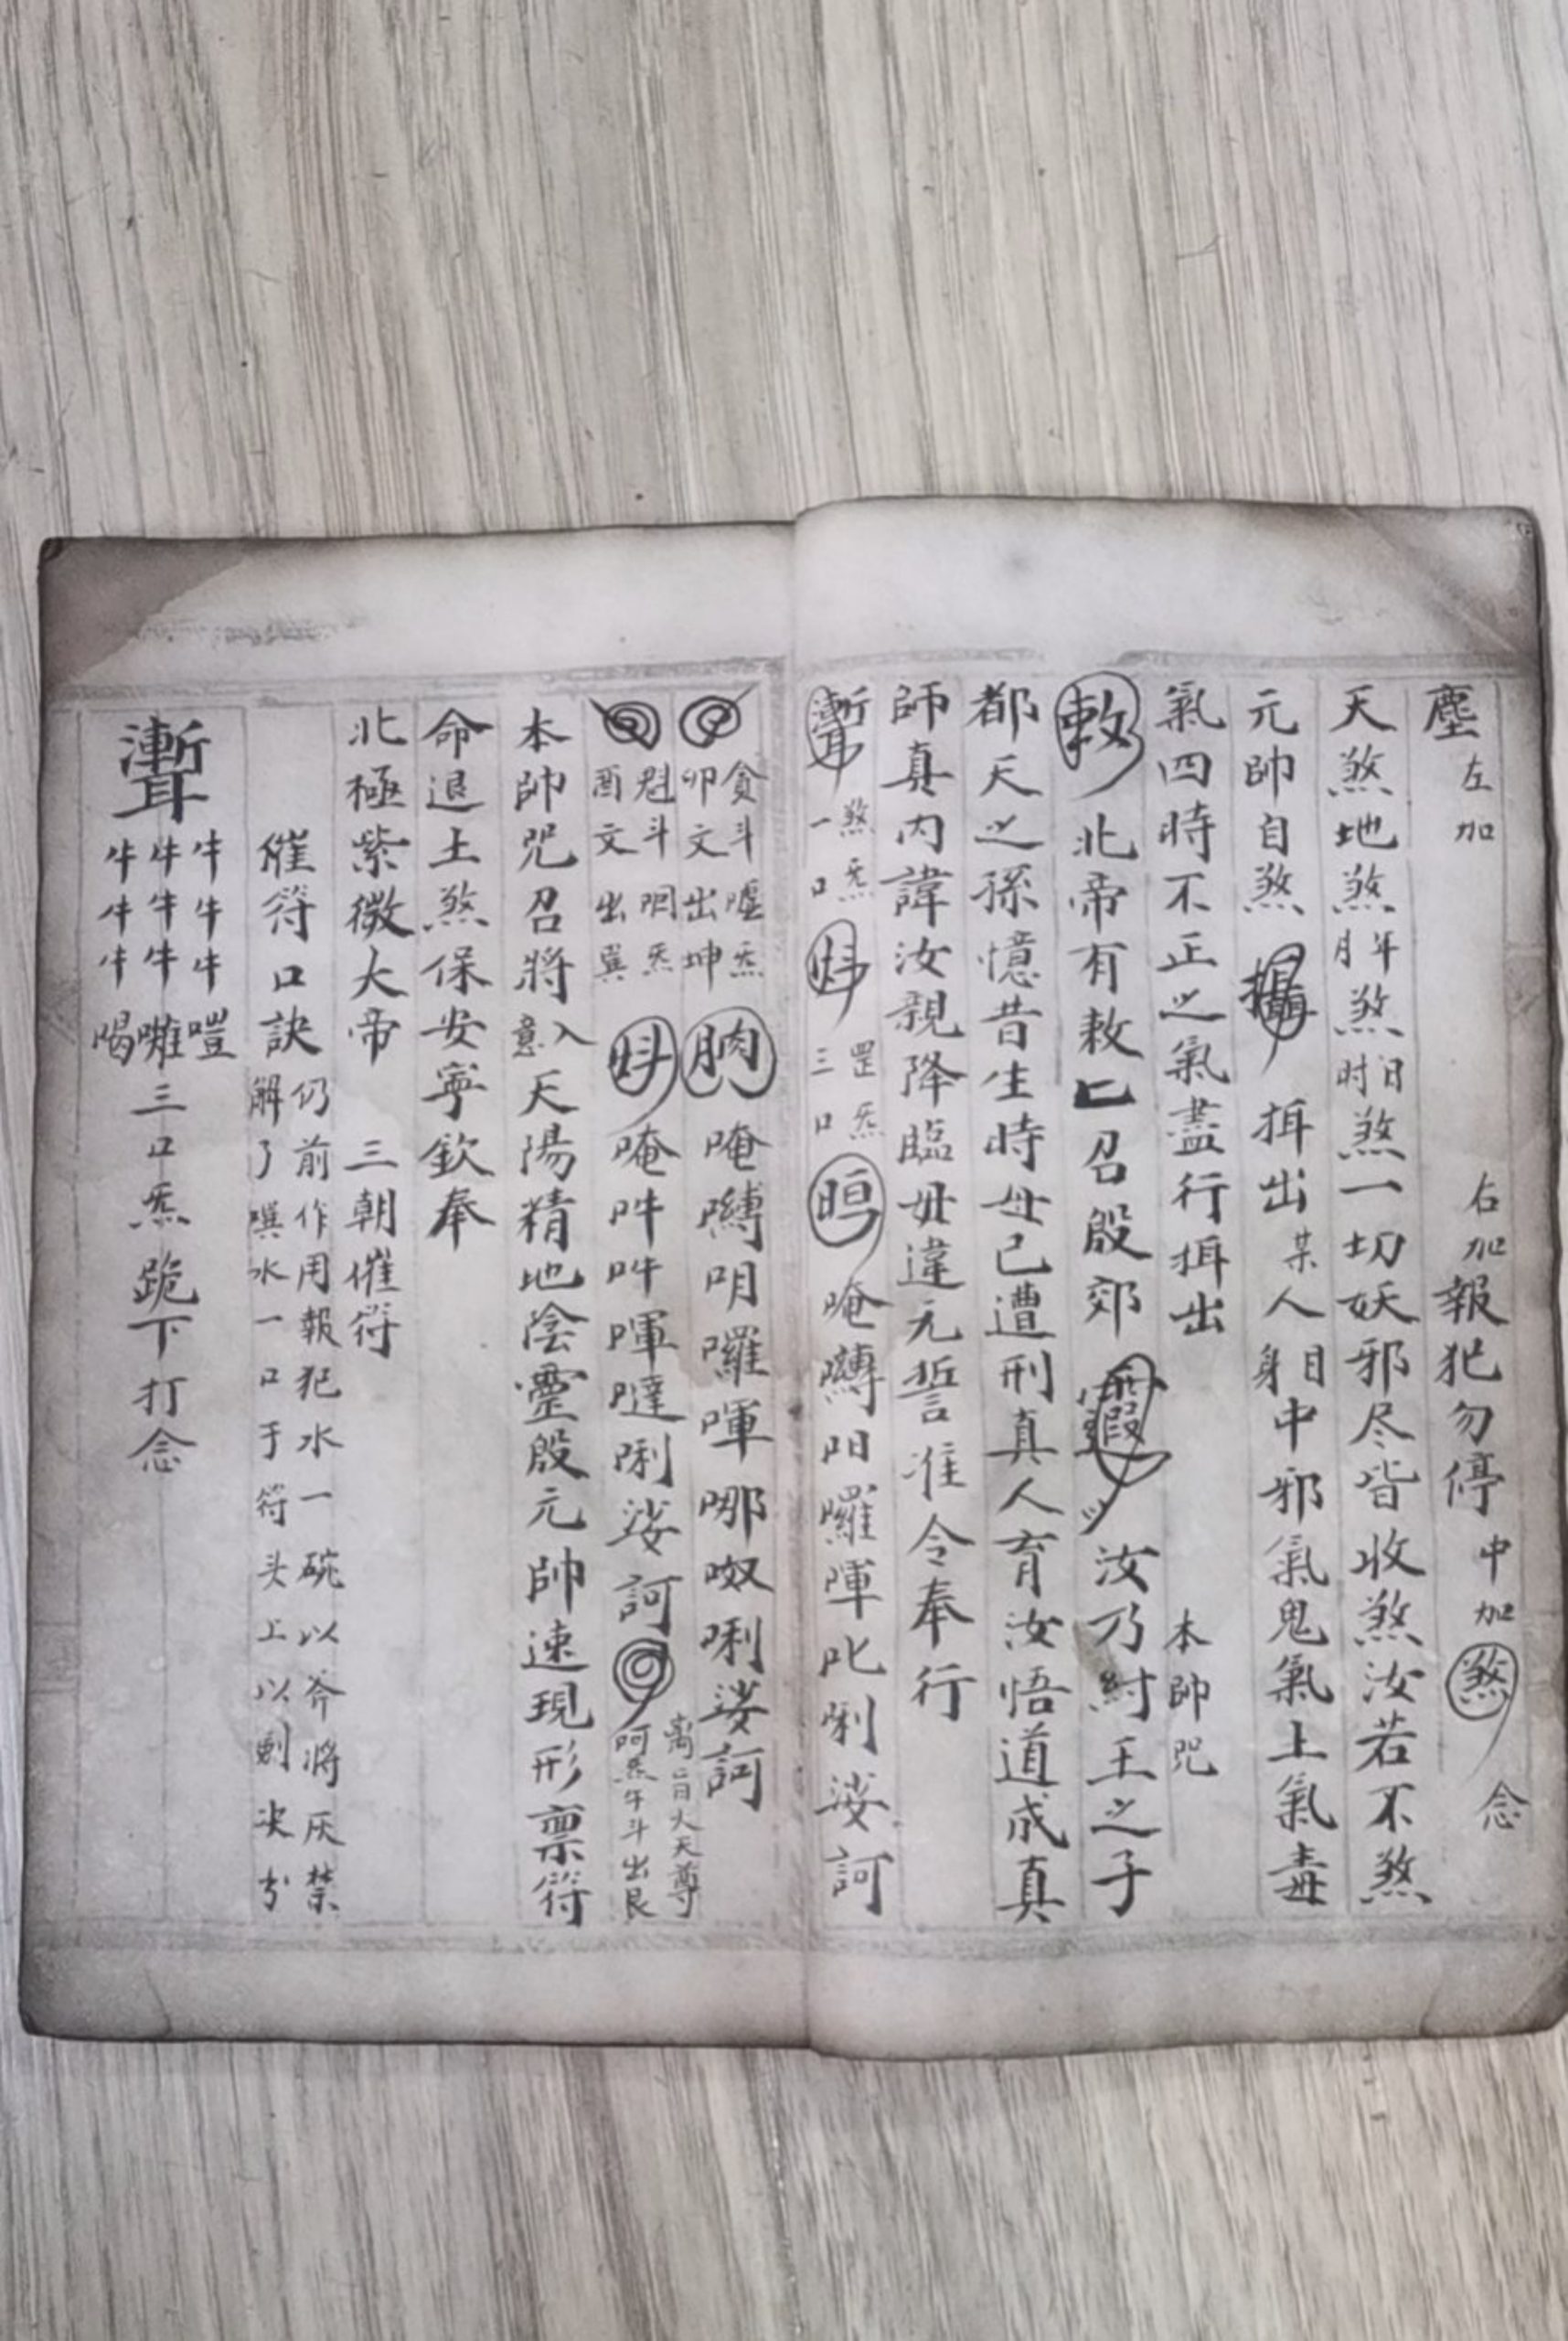 塵 左加 右加 報犯勿停 中加 煞 念
天煞地煞年月煞日时煞一切妖邪尽皆收煞汝若不煞
元帅自煞 攝 挕出某人身目中邪氣鬼氣土氣毒
氣四時不正之氣盡行挕出 本帅咒
敕 北帝有敕匕召殷郊 汝乃紂王之子
都天之孫憶昔生時母已遭刑真人育汝悟道成真
師真内諱汝親降臨毋違元誓准令奉行
魙 煞炁一口 罡炁三口 唵囀 囉唓叱唎娑訶
貪斗嘘炁卯文出坤 唵囀 囉唓哪呶唎娑訶
魁斗 炁酉文出巽 唵吽吽唓噠唎娑訶 离旨火天尊阿炁午斗出艮
本帥咒召將入意天陽精地陰靈殷元帥速現形禀符
命退土煞保安寧欽奉
北極紫微大帝 三朝催符
催符口訣 仍前作用報犯水一碗以斧將灰禁
解了噀水一口于符头上以劍决
牛牛牛牛牛牛牛牛牛 嘊囃喝三口炁跪下打念